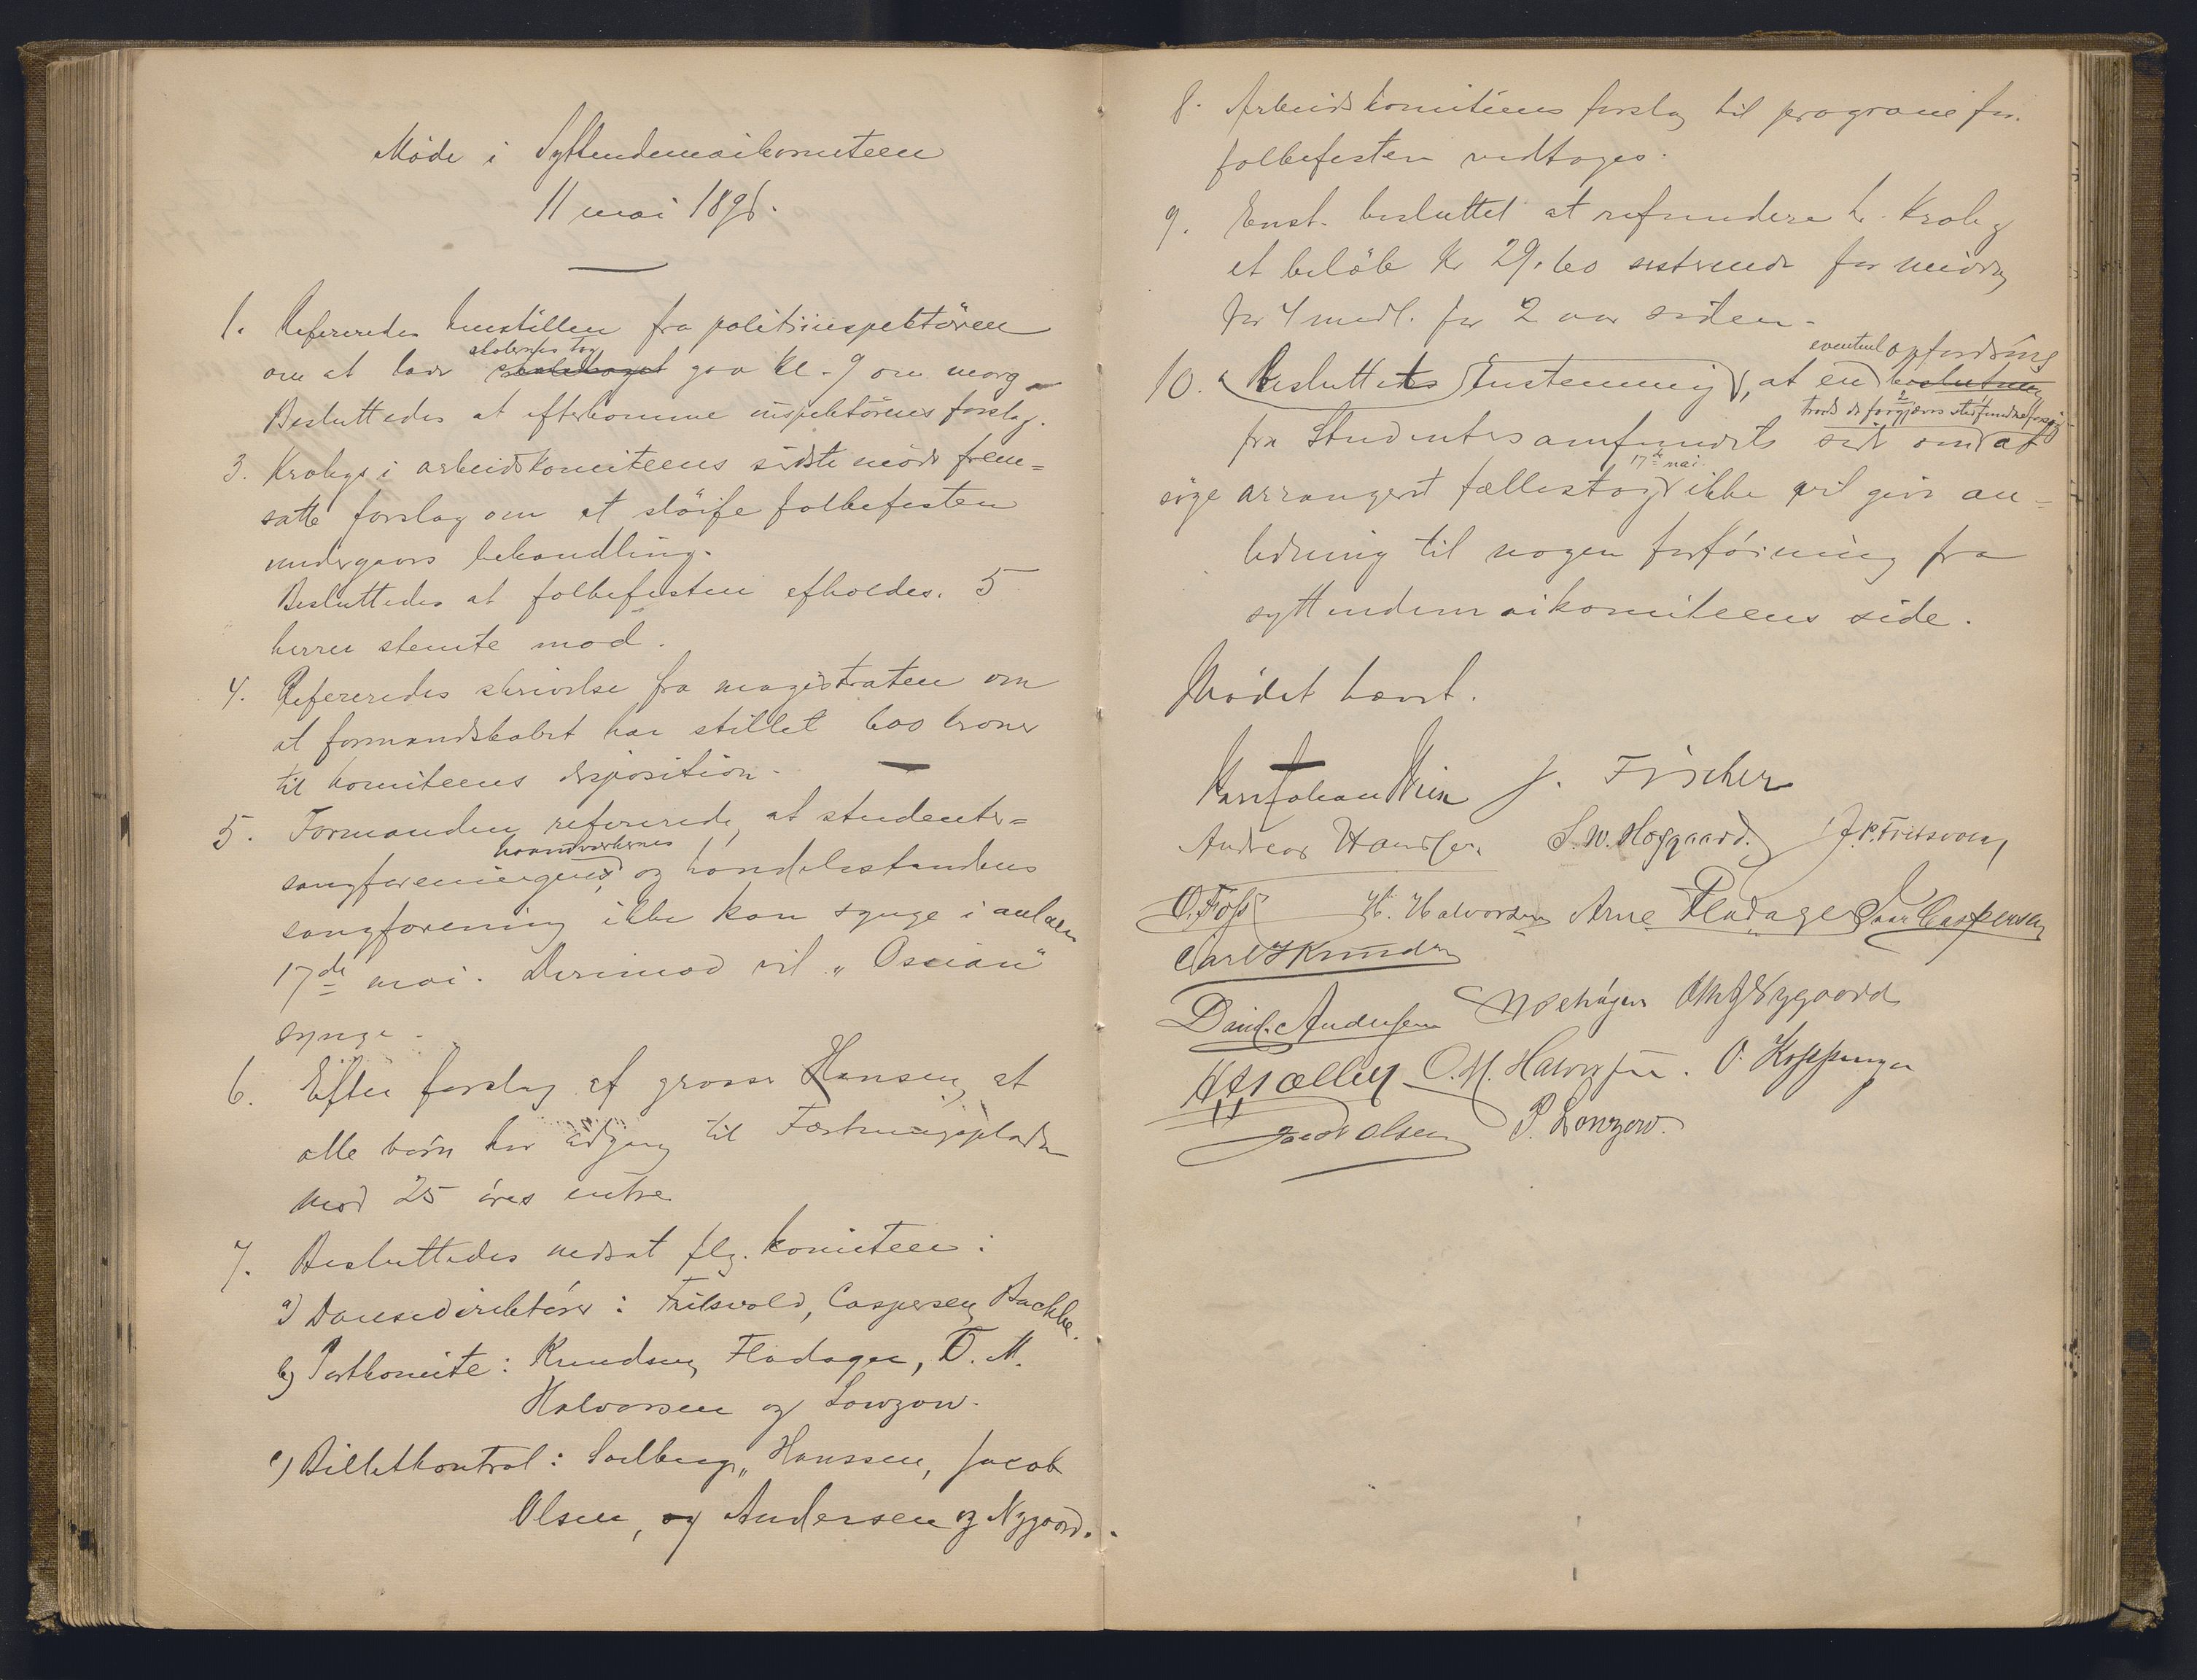 Møde i Syttendemaikomiteen
11 mai 1896.
1. Refereredes henstillen fra politiinspektören
skolernes tog
om at lade gaa kl. 9 om morg
Besluttedes at efterkomme inspektörens forslag.
3. Krohgs i arbeidskomiteens sidste möde frem=
satte forslag om at slöife folkefesten
undergaves behandling.
Besluttedes at folkefesten afholdes. 5
herrer stemte mod.
4. Refereredes skrivelse fra magistraten om
at formandskabet har stillet 600 kroner
til komiteens disposition.
5. Formanden refererede, at studenter=
haandverkernes
sangforeningens og handelsstandens
sangforening ikke kan synge i aulaen
17de mai. Derimod vil „Ossian"
synge.
6. Efter forslag af grosse Hansen, at
alle börn har adgang til Fæstningspladsen
mod 25 öres entre
7. Besluttedes nedsat flg. komiteer:
a) Dansedirektörer: Fritsvold, Caspersen, Backke.
b) Portkomite: Knudsen, Fladager, O. M.
Halvorsen og Lowzow.
c) Billetkontrol: Solberg, Hanssen, Jacob
Olsen, og Andersen og Nygaard.
8. Arbeidskomiteens forslag til program for
folkefesten vedtoges.
9. Enst. besluttet at refundere hr. Krohg
et belöb Kr 29.60 resterende for middag
for 4 medl. for 2 aar siden.
eventuel opfordring
10. Besluttedes Enstemmig, at en beslutning
trods de forgjæves stedfundne forsög
fra Studentersamfundets side om at
17de mai
söge arrangeret fællestog ikke vil give an=
ledning til nogen forföining fra
syttendemaikomiteens side.
Mödet hævet.
Karl Johan J. Fischer
Andreas Hanssen. S. W. Hofgaard. J. P. Fritsvold
O. Foss H. Halvorsen Arne Fladager Caspersen
Carl Knudsen
Davd. Andersen Nygaard
O. M. Halvorsen. O.
Jacob Olsen P. Lowzow.